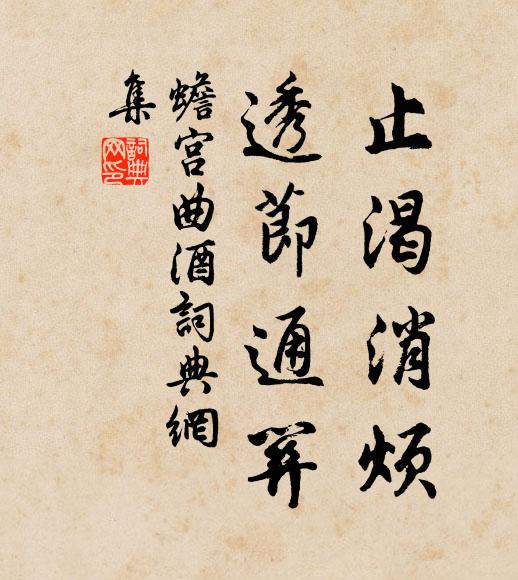 止渴消煩
透莭通関
蟾宫曲酒詞典網
集
詞典
网印